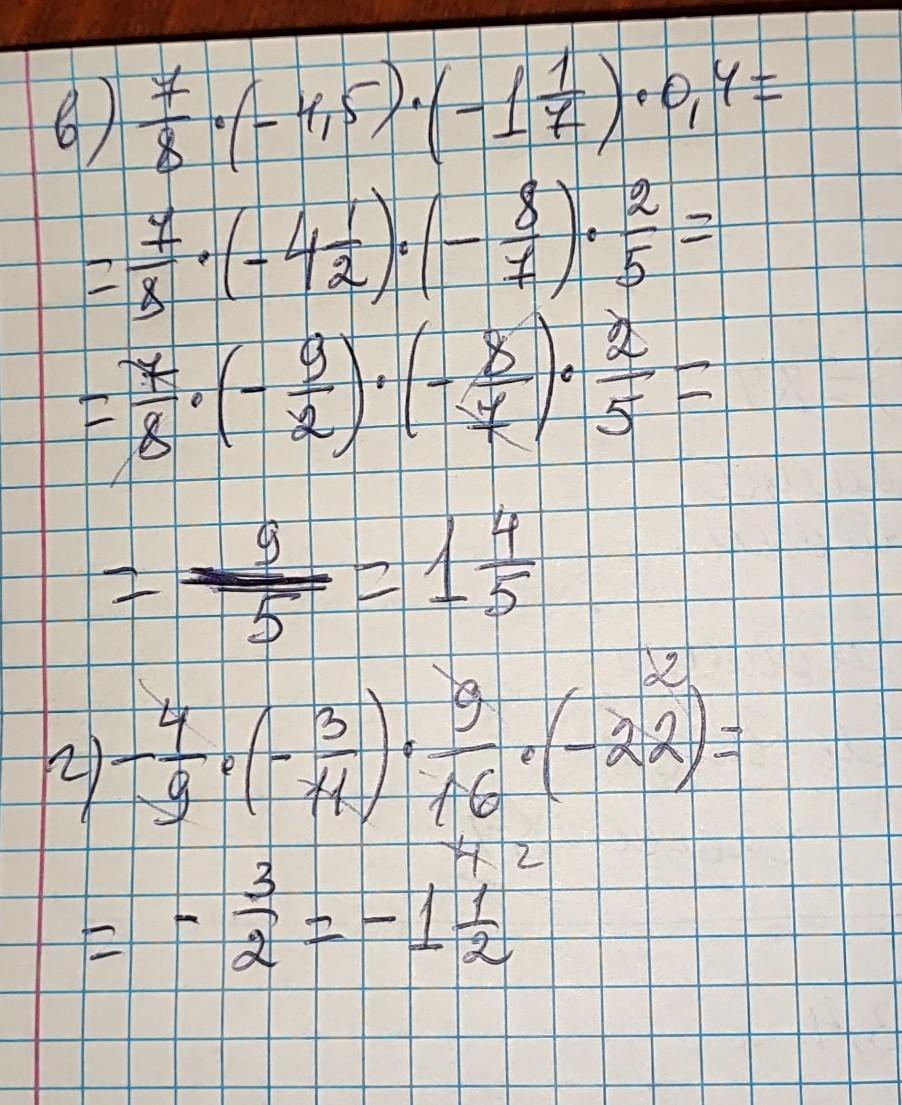 в) 7/8 · (-4,5) · (-1 1/7) · 0,4 =
= 7/8 · (-4 1/2) · (- 8/7) · 2/5 =
= 7/8 · (- 9/2) · (- 8/7) · 2/5 =
= 9/5 = 1 4/5
2
г) - 4/9 · (- 3/11) · 9/16 · (-22) =
4 2
= - 3/2 = -1 1/2